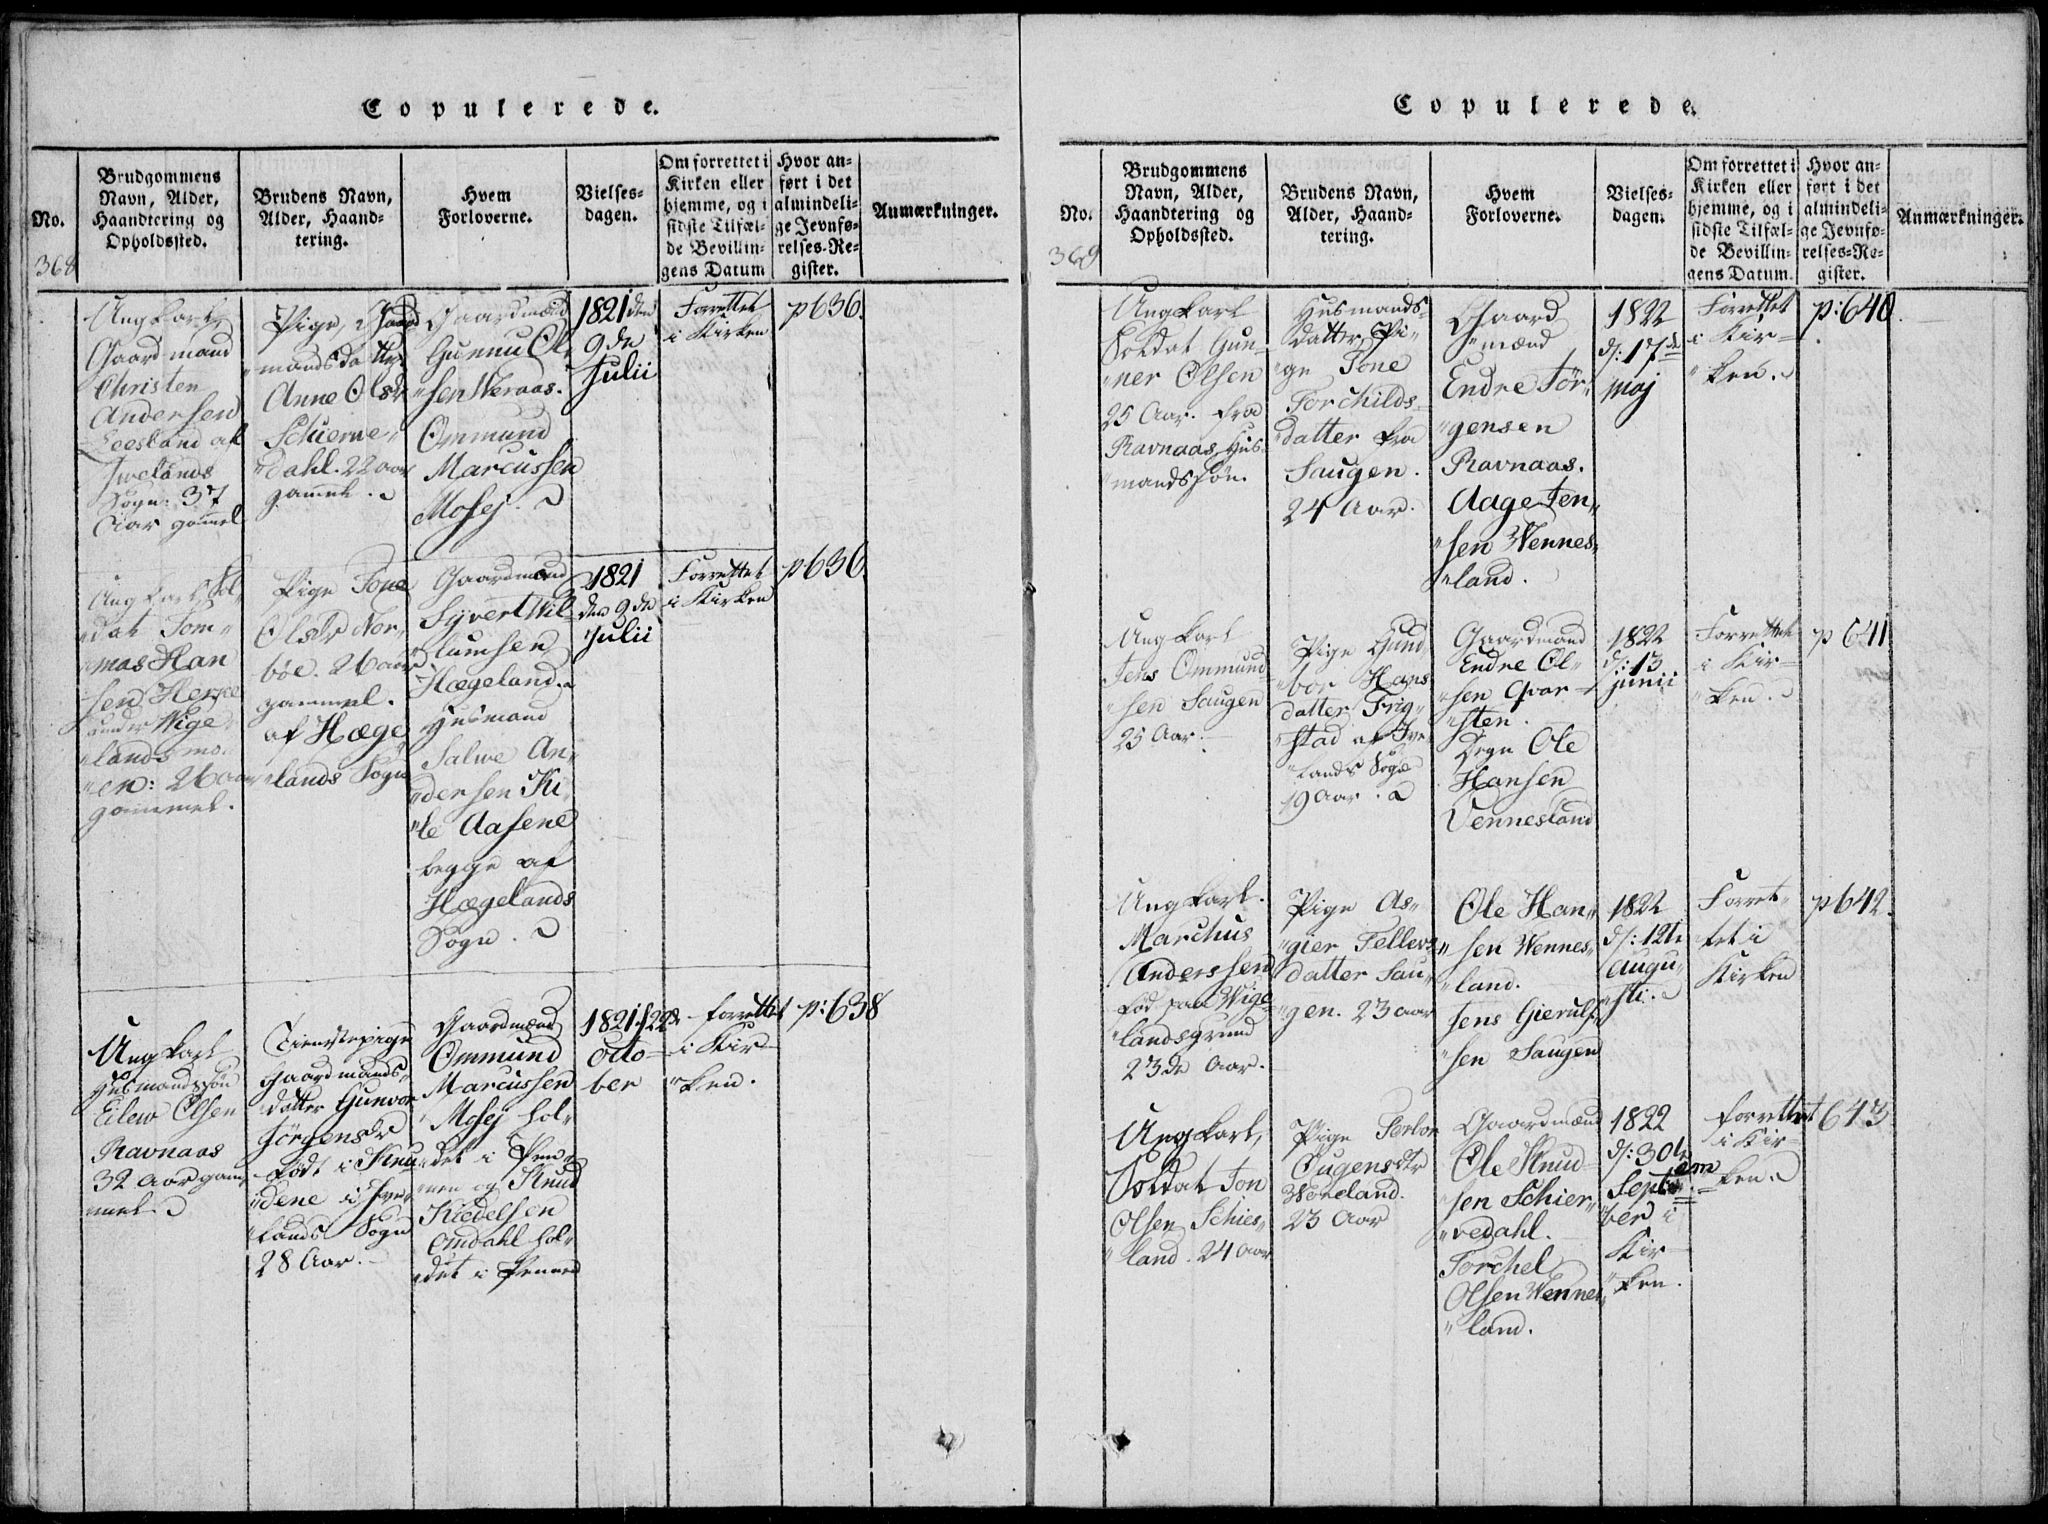 Copulerede.
No.
Brudgommens
Navn, Alder,
Haandtering og
Opholdssted.
Brudens Navn,
Alder, Haand-
tering.
Hvem
Forloverne.
Vielses-
dagen.
Om forrettet i
Kirken eller
hjemme, og i
sidste Tilfæl-
de Bevillin-
gens Datum
Hvor an-
ført i det
almindeli-
ge Jevnfø-
relses-Re-
gister.
Anmærkninger.
368
Ungkarl
Gaardmand
Christen
Andersen
af
Iwelands
Sogn. 37
Aar gammel
Pige, Gaard
mandsdatter
Anne Olsdr
Schierve„
„dahl. 22 aar
gammel.
Gaardmænd
Gunnu Ol„
„sen Weraas.
Ommund
Marcussen
Mosej.
1821 den
9de
Julii
Forrettet
i Kirken
p636.
Ungkarl Sol„
„dat Tom„
„mas Han
sen
under Wige„
„lands mo„
„en: 26 aar
gammel.
Pige Tone
Olsdr Nor„
böe. 26 aar
gammel.
af Hæge„
„lands Sogn
Gaardmænd
Syvert Wil„
„lumsen
Hægeland.
Husmand
Salwe An„
„dersen Ki„
„le Aasene
begge af
Hægelands
Sogn.
1821
den 9de
Julii
Forrettet
i Kirken
p636.
Ungkarl
Husmandssön
Eilew Olsen
Ravnaas
32 Aar gam„
mel.
Tienestepige
Gaardmands„
datter Gunvor
Jörgensdr
født i Knu„
„dene i Ive„
„lands Sogn
28 Aar.
Gaardmænd
Ommund
Marcussen
Mosej hol„
„det i Pen„
nen og Knud
Kiedelsen
Omdahl hol„
„det i Pennen
1821 d 22de
Octo„
ber
forrettet
i Kir„
„ken.
p: 638
Copulerede.
No.
Brudgommens
Navn, Alder,
Haandtering og
Opholdssted.
Brudens Navn,
Alder, Haand-
tering.
Hvem
Forloverne.
Vielses-
dagen.
Om forrettet i
Kirken eller
hjemme, og i
sidste Tilfæl-
de Bevillin-
gens Datum.
Hvor an-
ført i det
almindeli-
ge Jevnfø-
relses-Re-
gister.
Anmærkninger.
369
Ungkarl
Soldat Gun„
„ner Olsen
25 Aar. fra
Ravnaas, Hus„
„mandssön.
Husmands„
datter, Pi„
„ge Tone
Torchilds„
datter fra
Saugen.
24 Aar.
Gaard
„mænd
Endre Jör„
„gensen
Ravnaas.
Aage Jen„
„sen Wennes„
„land.
1822
d: 17de
maj
Forrettet
i Kir„
„ken.
p: 640.
Ungkarl
Jens Ommund
„sen Saugen
25 Aar.
Pige Gund„
„bor Hans
datter Frig„
„stad af Ive„
„lands Sogn
19 Aar.
Gaardmand
Endre Ol„
„sen Qvar„
„sten.
Degn Ole
Hansen
Vennesland
1822
d: 13
junii
Forrettet
i Kir„
„ken.
p 641
Ungkarl.
Marchus
Anderssen
Föd paa Wige„
„landsgrund
23de Aar.
Pige As„
„gier Tellevs„
datter Sau„
„gen. 23 aar
Ole Han„
„sen Wennes„
„land.
Jens Gierulf„
„sen Saugen
1822
d: 12te
Augu„
„sti.
Forret„
„tet i
Kirken
p 642.
Ungkarl,
Soldat Jon
Olsen Schies„
„land. 24 Aar
Pige Torbor
Eugensdtr
Woreland.
23 Aar
Gaardmænd
Ole Knud„
„sen Schier„
„vedahl.
Torchel
Olsen Wennes„
„land.
1822
d: 30te
Septem„
ber i
Kir„
„ken.
forrettet
i Kir„
„ken.
643